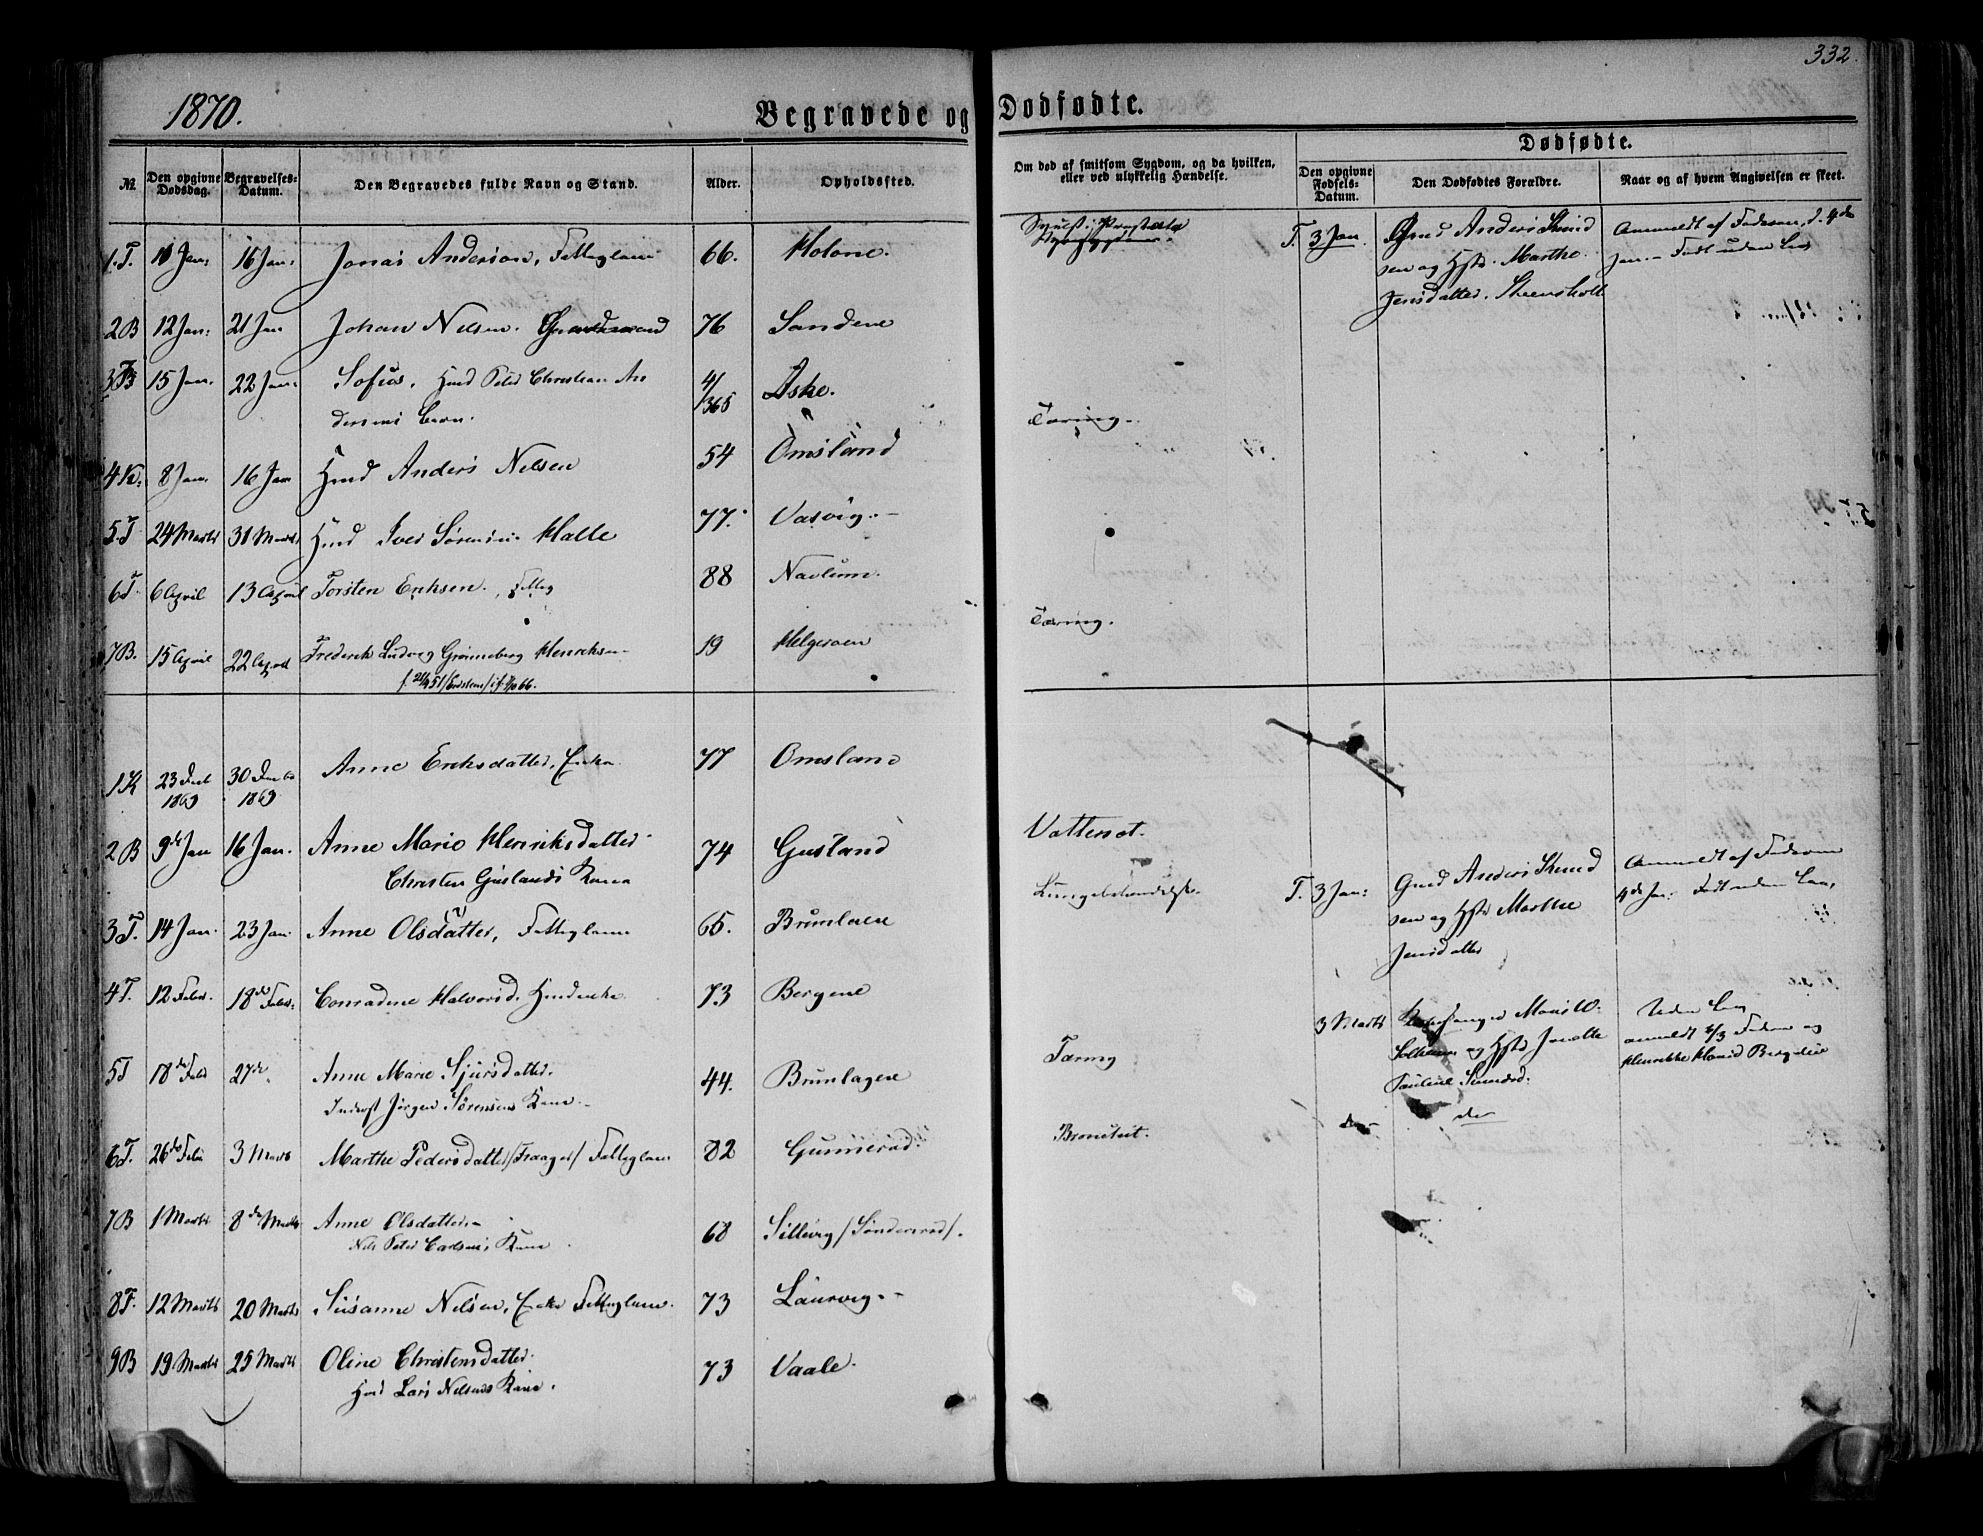 332.
1870.
Begravede og Dødfødte.
Dødfødte.
№
Den opgivne Dødsdag.
Begravelses-Datum.
Den Begravedes fulde Navn og Stand.
Alder.
Opholdssted.
Om død af smitsom Sygdom, og da hvilken, eller ved ulykkelig Hændelse.
Den opgivne Fødsels-Datum.
Den Dødfødtes Forældre.
Naar og af hvem Angivelsen er skeet.
1.T. 10 Jan: 16 Jan: Jonas Anderson, Fatteglem 66. Holone.
T. 3 Jan. Gmd Anders Knud
sen og Hstr. Marthe
Jensdatter.
Anmeldt af Faderen d. 4de
Jan. - Født uden Liv
2 B 12 Jan: 21 Jan Johan Nilsen. 76 Sandene
3 B 15 Jan. 22 Jan: Sofus, Hmd Peter Christian An
dersens Barn.
4/365 Aske.
Tæring.
4 K. 8 Jan. 16 Jan Hmd Anders Nilsen 54 Omsland
5 T 24 Marts 31 Marts Hmd Iver Sørensen Halle 77. Vasvig.
6 T. 6 April 13 April Torsten Eriksen, Fatteg 88 Navlum.
Tæring.
7 B. 15 April 22 April Frederik Ludvig Grønneberg Henriksen 19 Helgeroen
1 K 23 Decb 1869 30 Decbr 1869 Anne Eriksdatter, Enke 77 Omsland
2 B 9de Jan 16 Jan. Anne Marie Henriksdatter
Christen Gusland's Kone
74 Gusland
Vattersot.
T. 3 Jan: Gmd Anders Knud
sen og Hstr Marthe
Jensdatter
Anmeldt af Faderen
4de Jan: Født uden Liv,
3 T. 14 Jan. 23 Jan. Anne Olsdatter, Fatteglem 65. Brunlaene
4 T. 12 Febr. 18de Febr: Conradine Halvorsd. 73 Bergene
3 Marts
Uden Liv,
anmeldt 4/3 Faderen og
5 T 18de Febr 27de. Anne Marie Sjursdatter.
Inderst Jørgen Sørensens Kone.
44. Brunlagene
Tæring
6 T. 26de Febr 3 Marts Marthe Pedersdatter / Fatteglem 82 Gunnerød.
Bronchit.
do do
7 B 1 Marts 8de Marts Anne Olsdatter.
Nils Peter Carlsens Kone
68 Sillevig /Søndersrød/.
8 T. 12 Marts 20 Marts Susanne Nilsen, Enke Fatteglem. 73 Laurvig.
9 B 19 Marts 25 Marts Oline Christensdatter.
Hmd Lars Nilsens Kone.
73 Vaale.